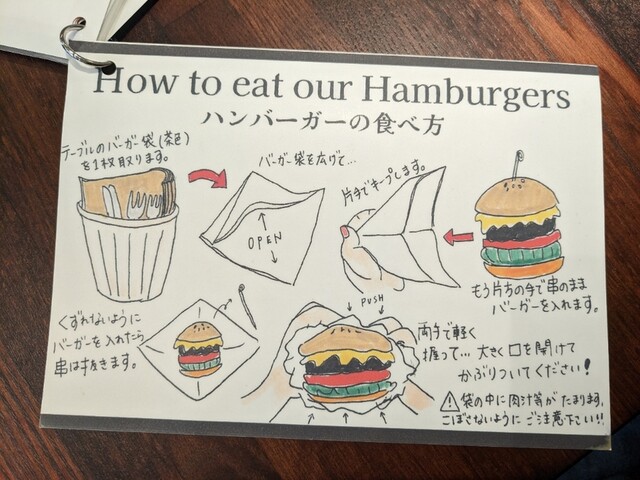 How to eat our Hamburgers
ハンバーガーの食べ方
テーブルのバーガー袋(茶色)
を1枚取ります。
バーガー袋を広げて…
OPEN
片手でキープします。
もう片方の手で串のまま
バーガーを入れます。
くずれないように
バーガーを入れたら
串は抜きます。
PUSH
両手で軽く
握って… 大きく口を開けて
かぶりついてください!
⚠袋の中に肉汁等がたまります。
こぼさないようにご注意下さい!!